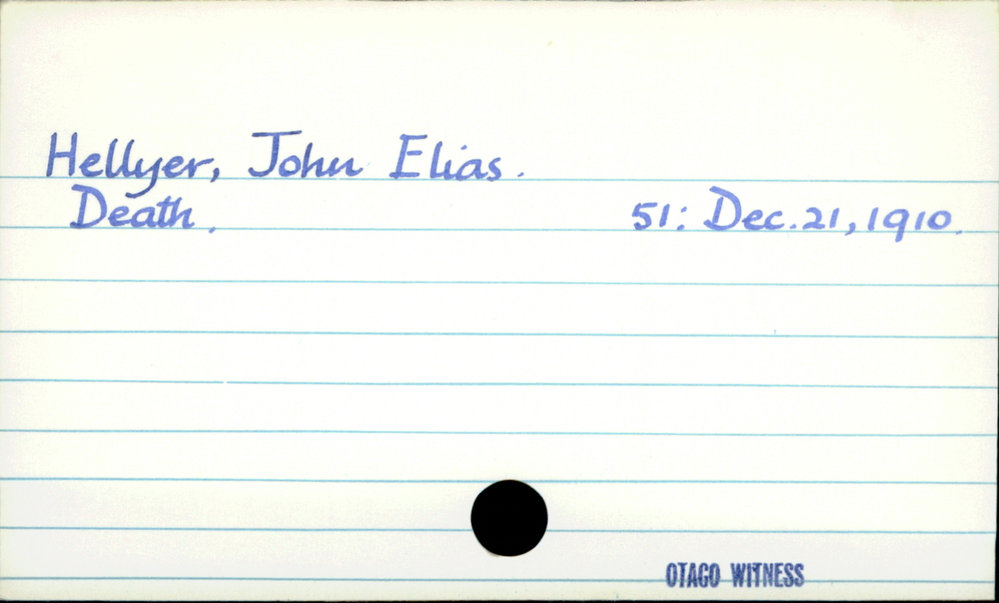 Hellyer, John Elias.
Death. 51: Dec. 21, 1910.
OTAGO WITNESS